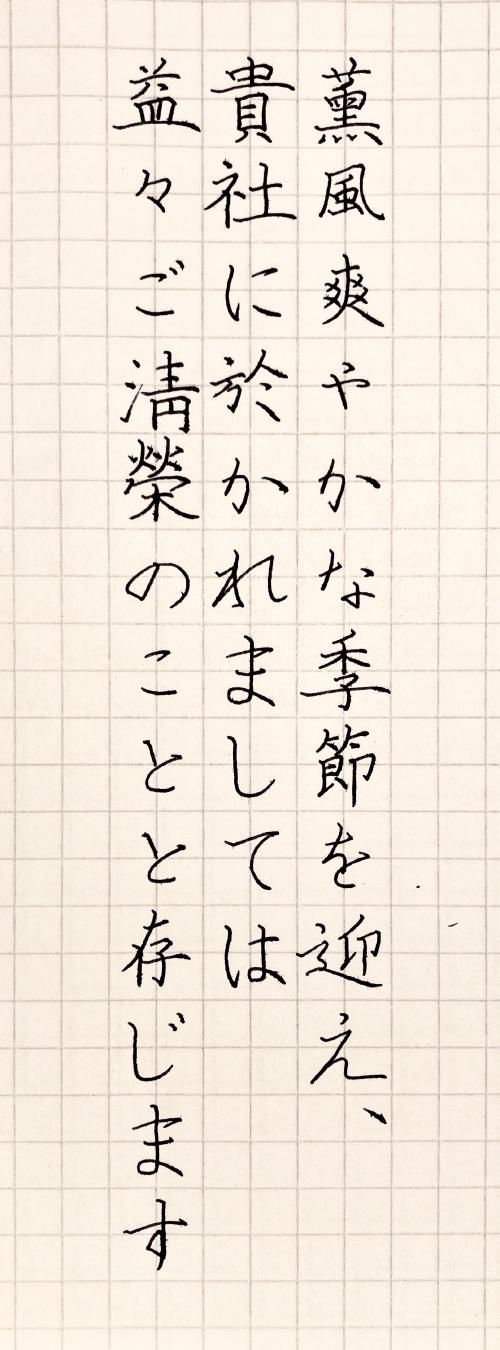 薫風爽やかな季節を迎え、
貴社に於かれましては
益々ご清榮のことと存じます